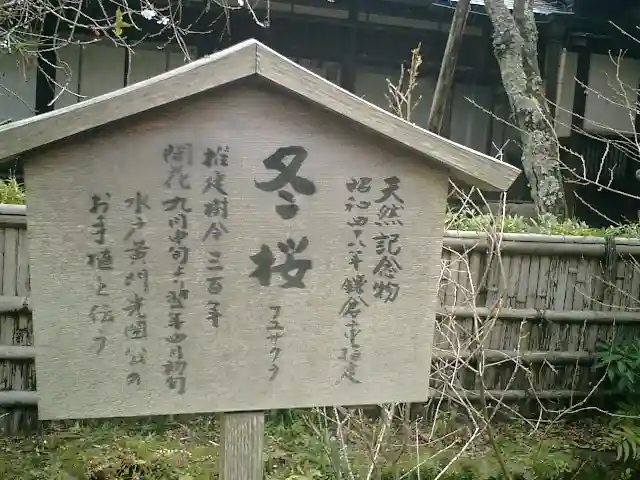 天然記念物
昭和四十六年鎌倉市指定
冬桜
フユザクラ
推定樹令三百年
開花九月中旬より翌年四月初旬
水戸黄門光圀公の
お手植と伝う